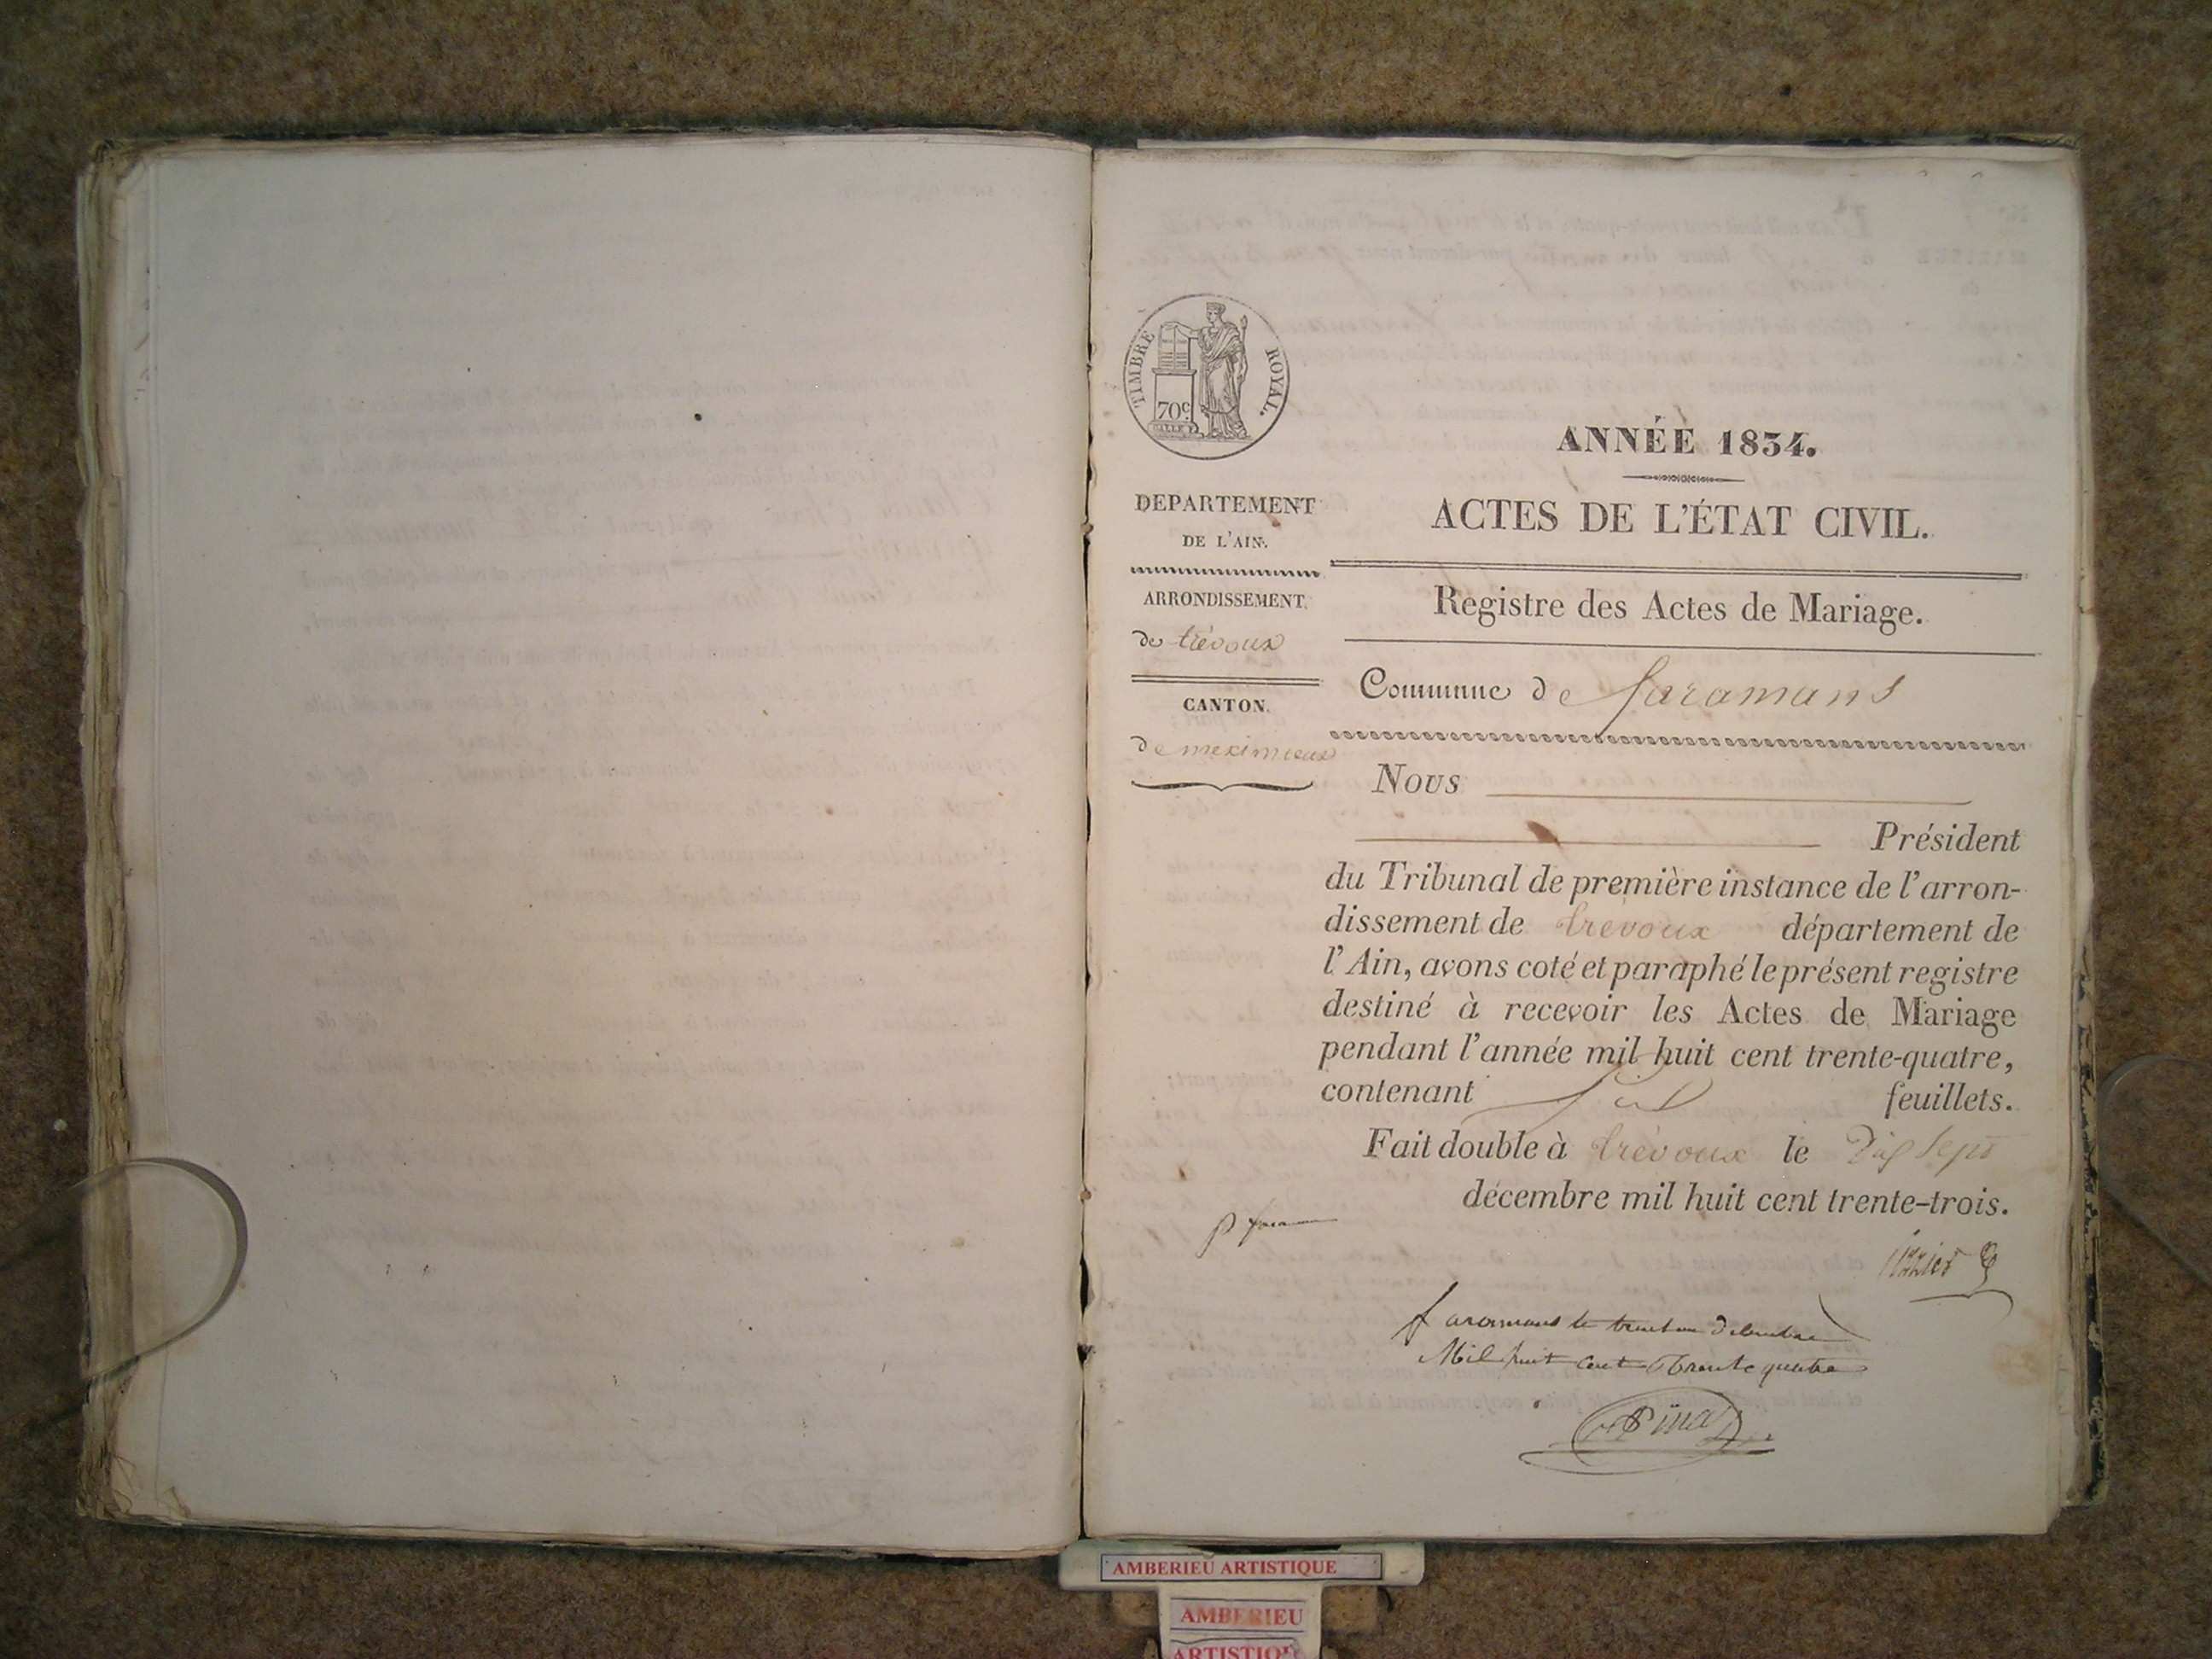 TIMBRE ROYAL.
70c.
DEPARTEMENT
DE L'AIN.
ARRONDISSEMENT
de trévoux
CANTON
de meximieux
ANNÉE 1834.
ACTES DE L'ÉTAT CIVIL.
Registre des Actes de Mariage.
Commune de faramans
Nous
Président
du Tribunal de première instance de l'arron-
dissement de trévoux département de
l'Ain, avons coté et paraphé le présent registre
destiné à recevoir les Actes de Mariage
pendant l'année mil huit cent trente-quatre,
contenant feuillets.
Fait double à trévoux le Dix Sept
décembre mil huit cent trente-trois.
faramans le trente un Décembre
Mil huit cent Trente quatre
AMBERIEU ARTISTIQUE
AMBERIEU
ARTISTIQUE